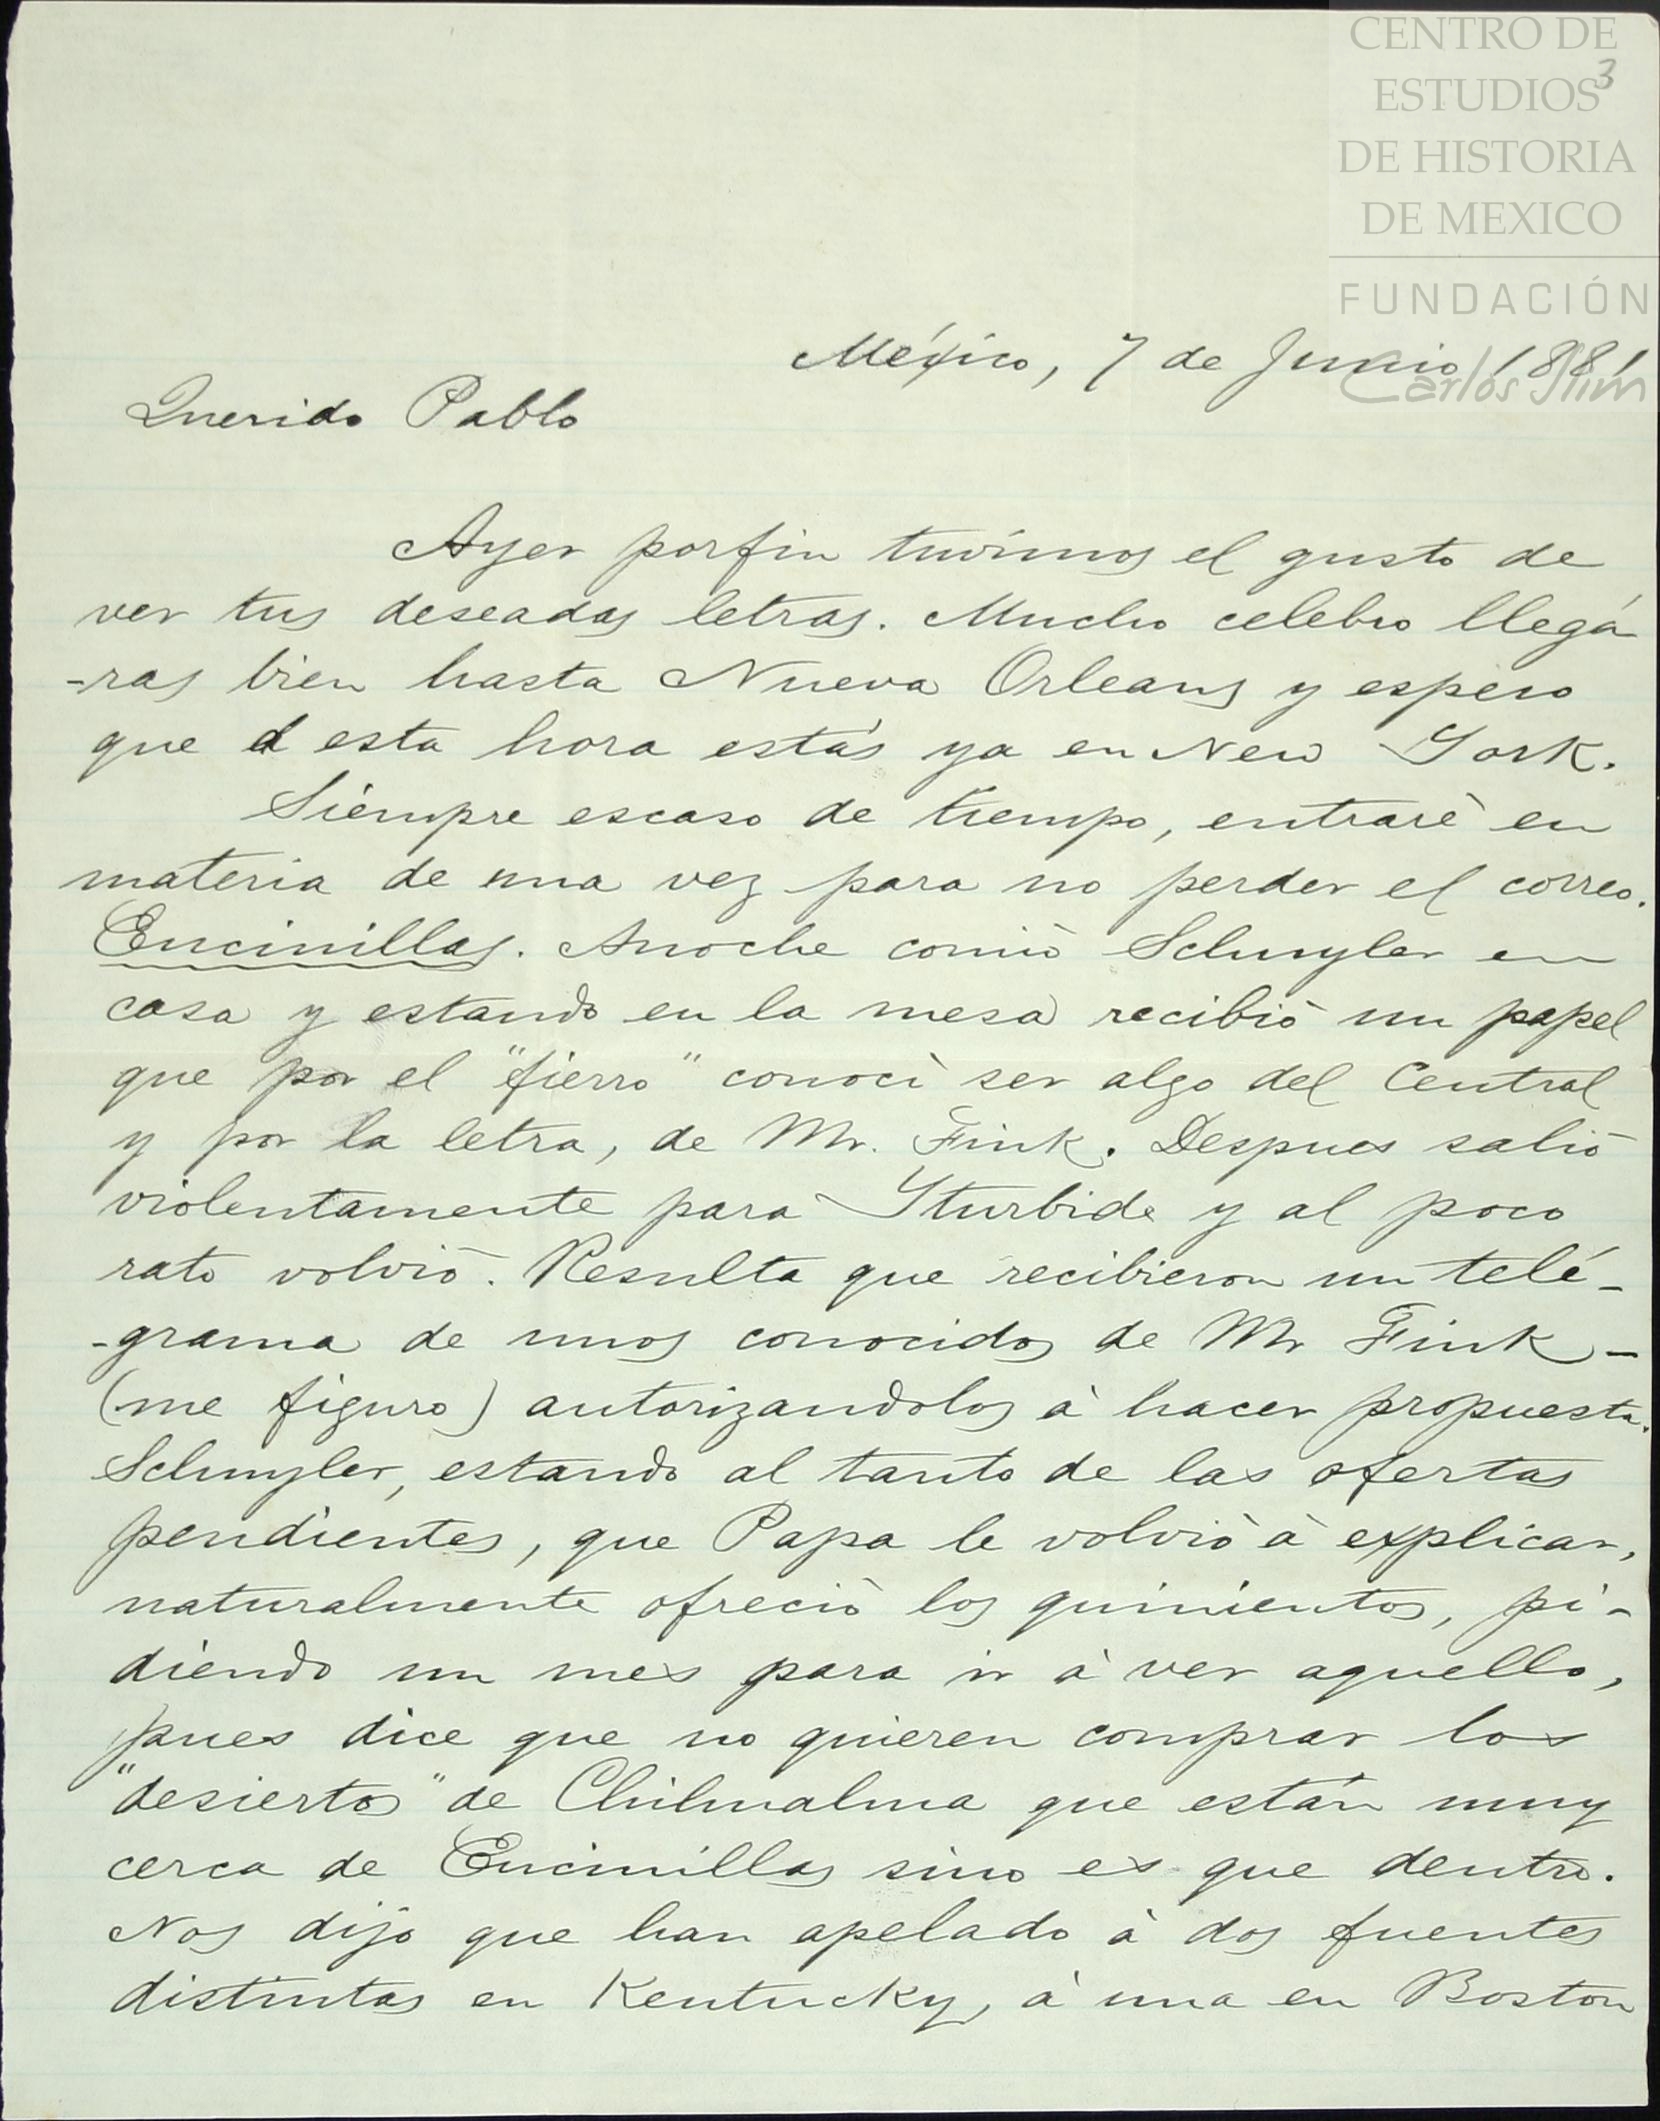 CENTRO DE
ESTUDIOS
3
DE HISTORIA
DE MEXICO
FUNDACIÓN
Carlos Slim
México, 7 de Junio 1881
Querido Pablo
Ayer porfin tuvimos el gusto de
ver tus deseadas letras. Mucho celebro llegá
-ras bien hasta Nueva Orleans y espero
que á esta hora estás ya en New York.
Siempre escaso de tiempo, entraré en
materia de una vez para no perder el correo.
Encinillas. Anoche comió Schuyler en
casa y estando en la mesa recibió un papel
que por el "fierro" conocí ser algo del Central
y por la letra, de Mr. Fink. Despues salió
violentamente para Yturbide y al poco
rato volvió. Resulta que recibieron un telé-
-grama de unos conocidos de Mr Fink -
(me figuro) autorizandolos à hacer propuesta.
Schuyler, estando al tanto de las ofertas
pendientes, que Papa le volvió à explicar,
naturalmente ofreció los quinientos, pi-
diendo un mes para ir à ver aquello,
pues dice que no quieren comprar los
"desiertos" de Chihuahua que están muy
cerca de Encinillas sino es que dentro.
Nos dijo que han apelado à dos fuentes
distintas en Kentucky, à una en Boston